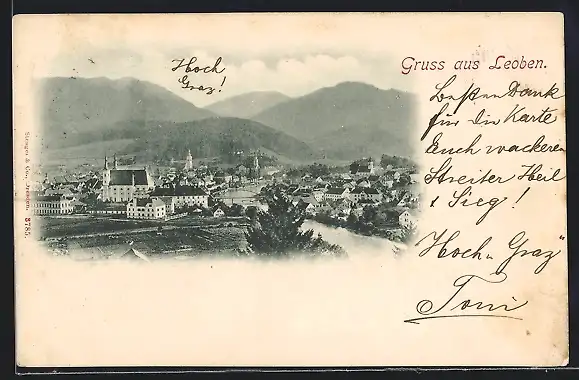 Hoch
Graz!
Gruss aus Leoben.
Besten Dank
für die Karte
Euch wackeren
Streiter Heil
& Sieg!
Hoch „Graz“
Toni
Stengel & Co., Dresden. 8785.